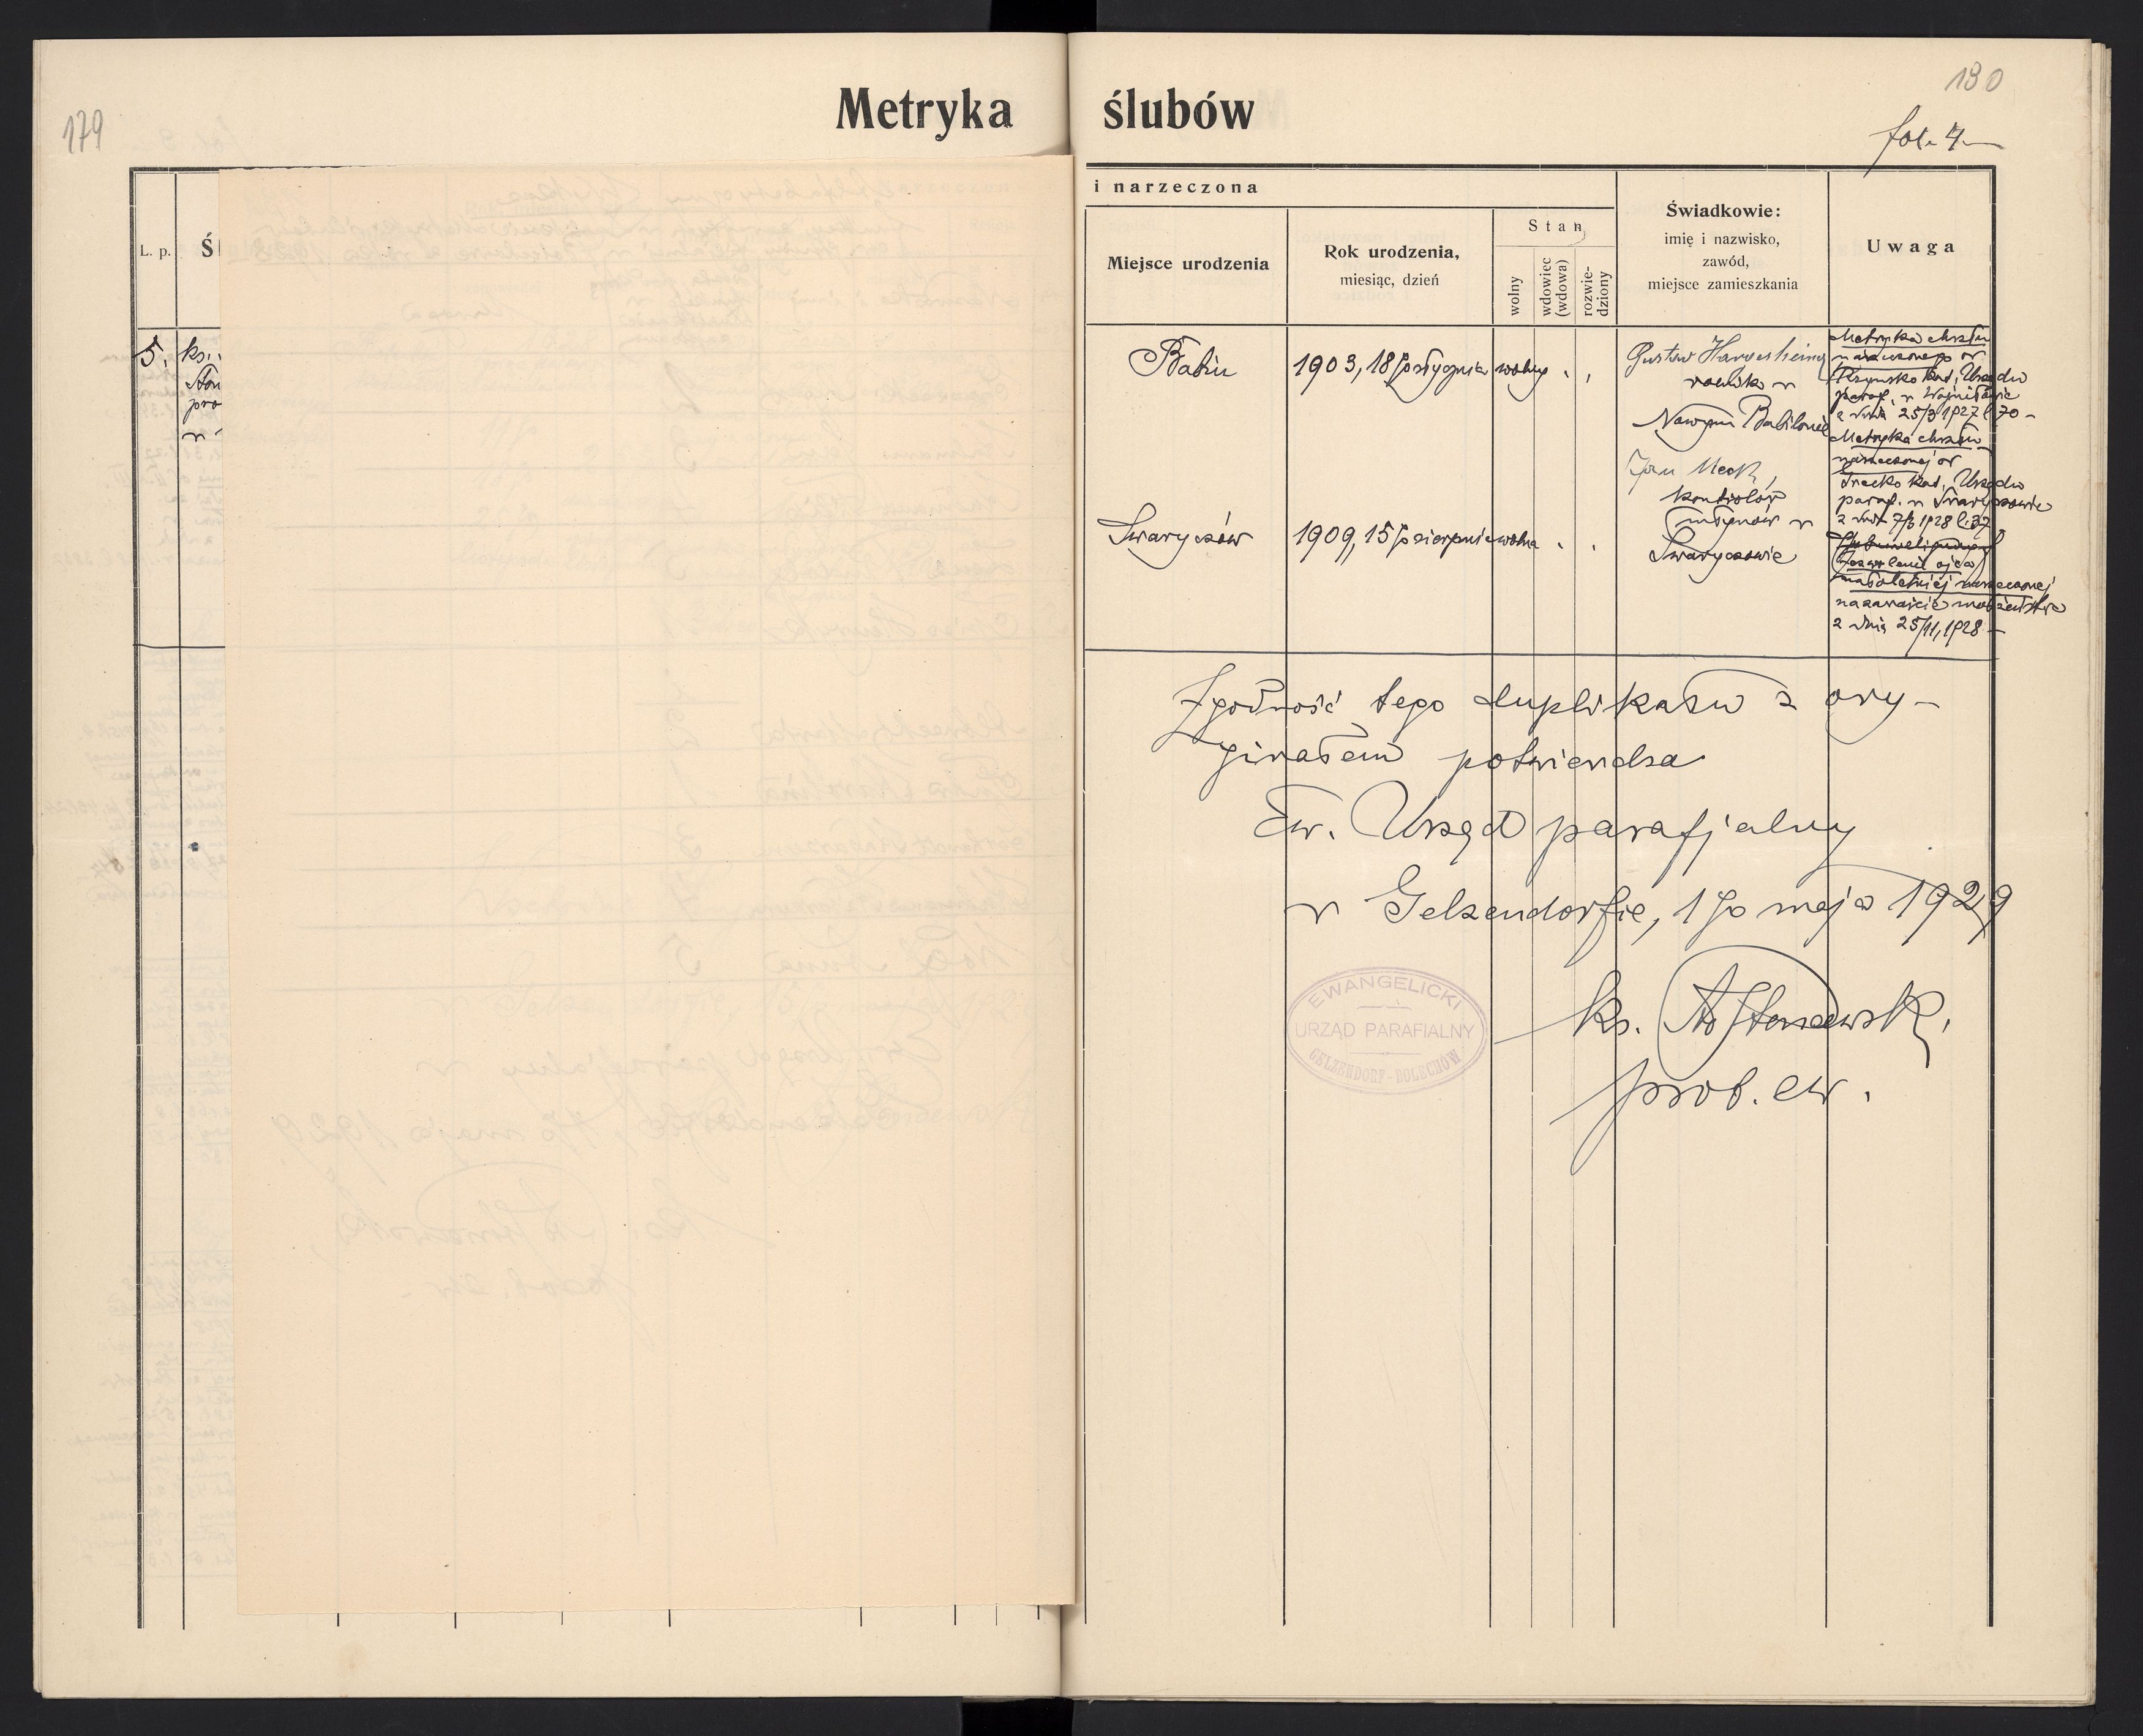 179
Metryka ślubów
130
fol. 4
L. p.
5.
ks.
pro
i narzeczona
Miejsce urodzenia
Rok urodzenia,
miesiąc, dzień
Stan
wolny
wdowiec
(wdowa)
rozwie-
dziony
Świadkowie:
imię i nazwisko,
zawód,
miejsce zamieszkania
Uwaga
Babin
1903, 18go stycznia
wolny
Gustaw
rolnik w
Nowym Babilonie
Metryka chrztu
narzeczonego od
Rzymsko kat. Urzędu
paraf. w Wojniłowie
z dnia 25/3 1927 l. 70 -
Metryka chrztu
narzeczonej od
Grecko kat. Urzędu
paraf. w Swaryczowie
z dnia 7/3 1928 l. 37
Jan Meck,
kontrolor
młynów w
Swaryczowie
Swaryczów
1909, 15go sierpnia
wolna
Zezwolenie ojca
małoletniej narzeczonej
na zawarcie małżeństwa
z dnia 25/11, 1928 -
Zgodność tego duplikatu z ory-
ginałem potwierdza
Ew. Urząd parafjalny
w Gelsendorfie, 1go maja 1929
EWANGELICKI
URZĄD PARAFIALNY
GELZENDORF-BOLECHÓW
ks.
prob. ew.